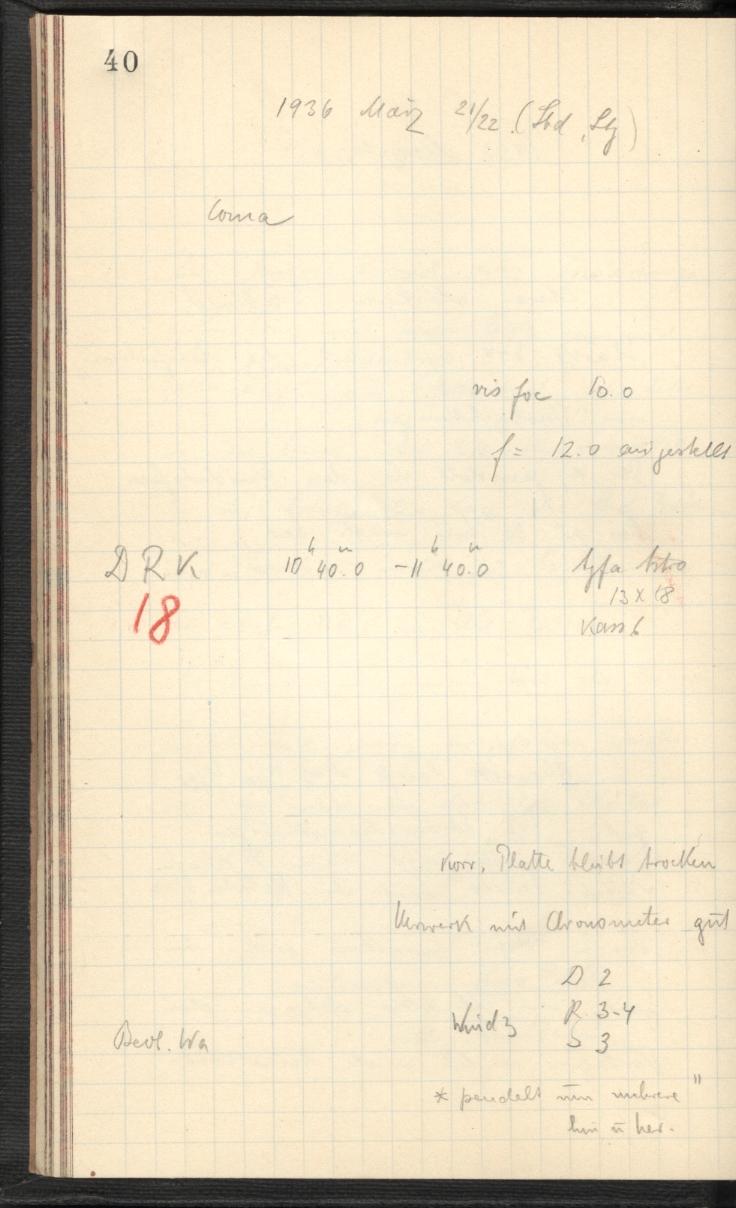 40
1936 März 21/22. (Sbd, Stg)
Coma
vis foc 10.0
f = 12.0 eingestellt
DRK 10h 40m.0 – 11h 40m.0 Agfa Astro
18 13 x 18
Kass 6
Korr. Platte bleibt trocken
Uhrwerk mit Chronometer gūt
D 2
Wind 3 R 3-4
S 3
Beob. Wa
* pendelt ūm mehrere "
hin ū her.